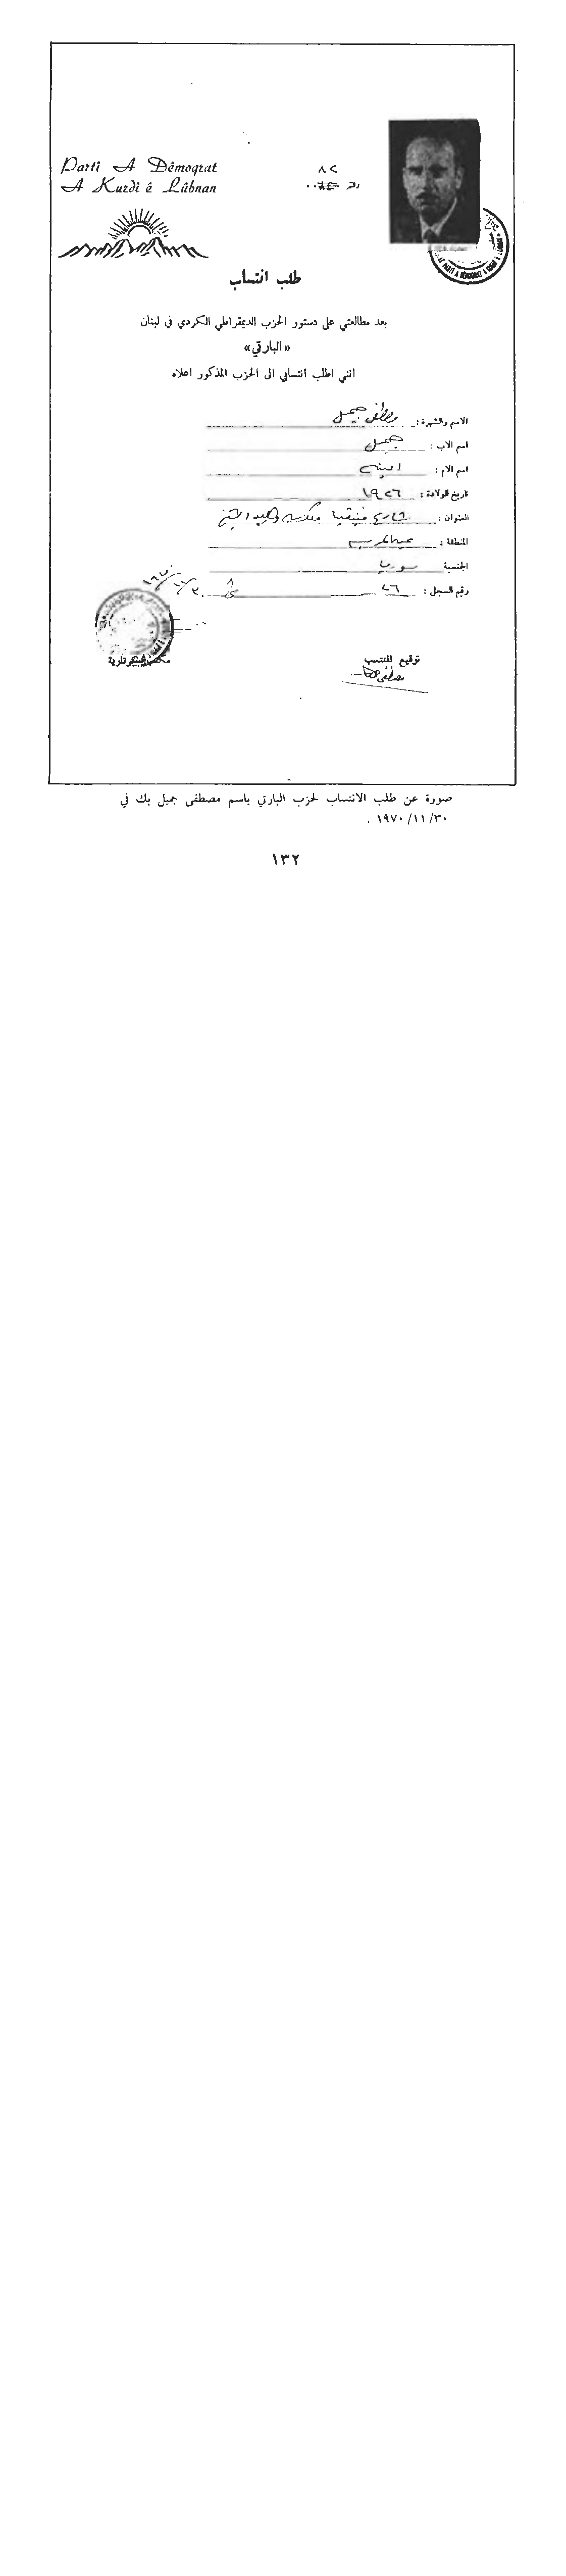 Partî A Dêmoqrat
A Kurdî ê Lûbnan
٨٢
طلب انتساب
بعد مطالعتي على دستور الحزب الديمقراطي الكردي في لبنان
«البارتي»
انني اطلب انتسابي الى الحزب المذكور اعلاه
الاسم والشهرة : مصطفى جميل
اسم الاب : جميل
اسم الام : امينه
تاريخ الولادة : ١٩٢٦
العنوان : شارع فينيقيا
المنطقة : عين المريسه
الجنسية سوريا
رقم السجل : ٢٦
مكتب السكرتارية
توقيع المنتسب
مصطفى
صورة عن طلب الانتساب لحزب البارتي باسم مصطفى جميل بك في
١٩٧٠/١١/٣٠ .
١٣٢